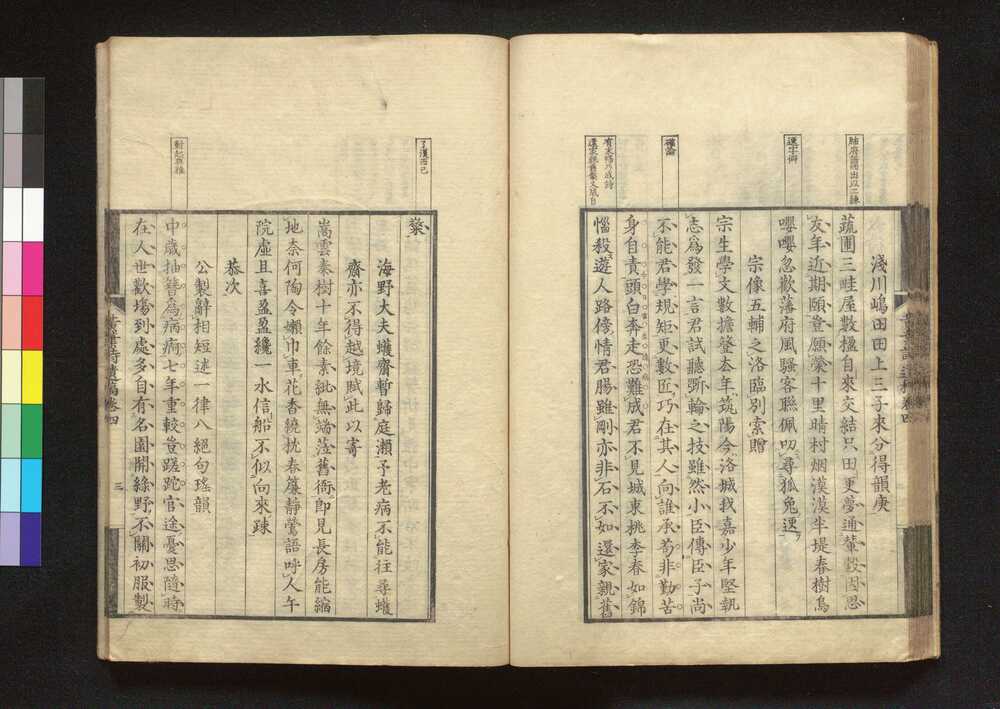 淺川嶋田田上三子來分得韻庚
蔬圃三畦屋數楹自來交結只田更夢通輦轂因思
友年近期頤豈願榮十里晴村烟漠漠半堤春樹鳥
嚶嚶忽歡藩府風騷客聯佩叩尋狐兔逕
宗像五輔之洛臨別索贈
宗生學文數擔簦去年筑陽今洛城我嘉少年堅執
志為發一言君試聽斲輪之技雖然小臣傳臣子尚
不能君學規矩更數匠巧在其人向誰承苟非勤苦
身自責頭白奔走恐難成君不見城東桃李春如錦
惱殺遊人路傍情君腸雖剛亦非石不如還家親舊
檠
海野大夫蠖齋暫歸庭瀨予老病不能往尋蠖
齋亦不得越境賦此以寄
嵩雲秦樹十年餘素紕無端蒞舊衙即見長房能縮
地奈何陶令嬾巾車花香繞枕春簾靜鶯語呼人午
院虛且喜盈盈纔一水信船不似向來疎
恭次
公製辭相短述一律八絕句瑤韻
中歲抽簪為病痾七年重較豈蹉跎官途憂思隨時
在人世歡場到處多自有名園開綠野不關初服製
黃葉
詩遺稿卷四
三
選字術
確論
有